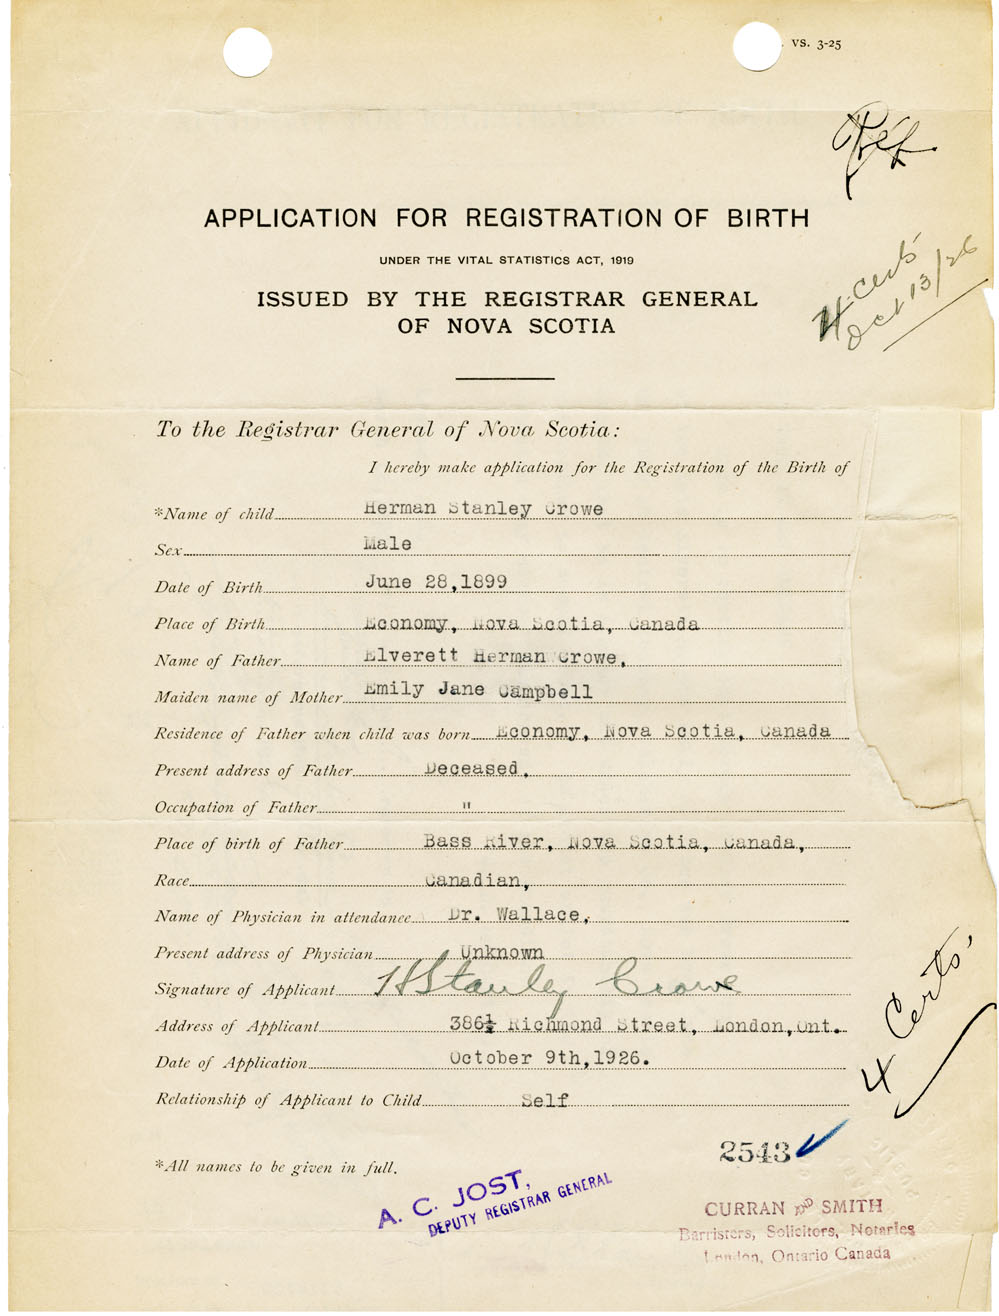 VS. 3-25
Ref.
APPLICATION FOR REGISTRATION OF BIRTH
UNDER THE VITAL STATISTICS ACT, 1919
4 certs
Oct 13/26
ISSUED BY THE REGISTRAR GENERAL
OF NOVA SCOTIA
To the Registrar General of Nova Scotia:
I hereby make application for the Registration of the Birth of
*Name of child Herman Stanley Crowe
Sex Male
Date of Birth June 28,1899
Place of Birth Economy, Nova Scotia, Canada
Name of Father Elverett Herman Crowe,
Maiden name of Mother Emily Jane Campbell
Residence of Father when child was born Economy, Nova Scotia, Canada
Present address of Father Deceased,
Occupation of Father "
Place of birth of Father Bass River, Nova Scotia, Canada,
Race Canadian,
Name of Physician in attendance Dr. Wallace,
Present address of Physician Unknown
Signature of Applicant H Stanley Crowe
Address of Applicant 386½ Richmond Street, London, Ont.
Date of Application October 9th,1926.
Relationship of Applicant to Child Self
4 Certs
2543
*All names to be given in full.
A. C. JOST,
DEPUTY REGISTRAR GENERAL
CURRAN AND SMITH
Barristers, Solicitors, Notaries
London, Ontario Canada